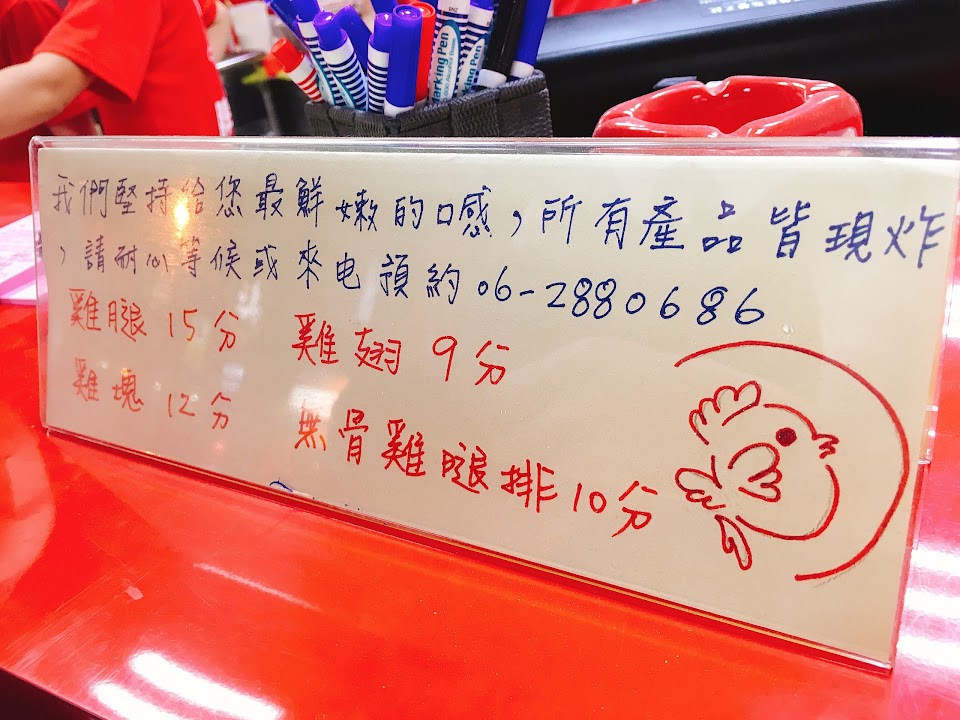 我們堅持給您最鮮嫩的口感,所有產品皆現炸
,請耐心等候或來电預約06-2880686
雞腿 15分 雞翅 9分
雞塊 12分 無骨雞腿排10分
Marking Pen
Marking Pen